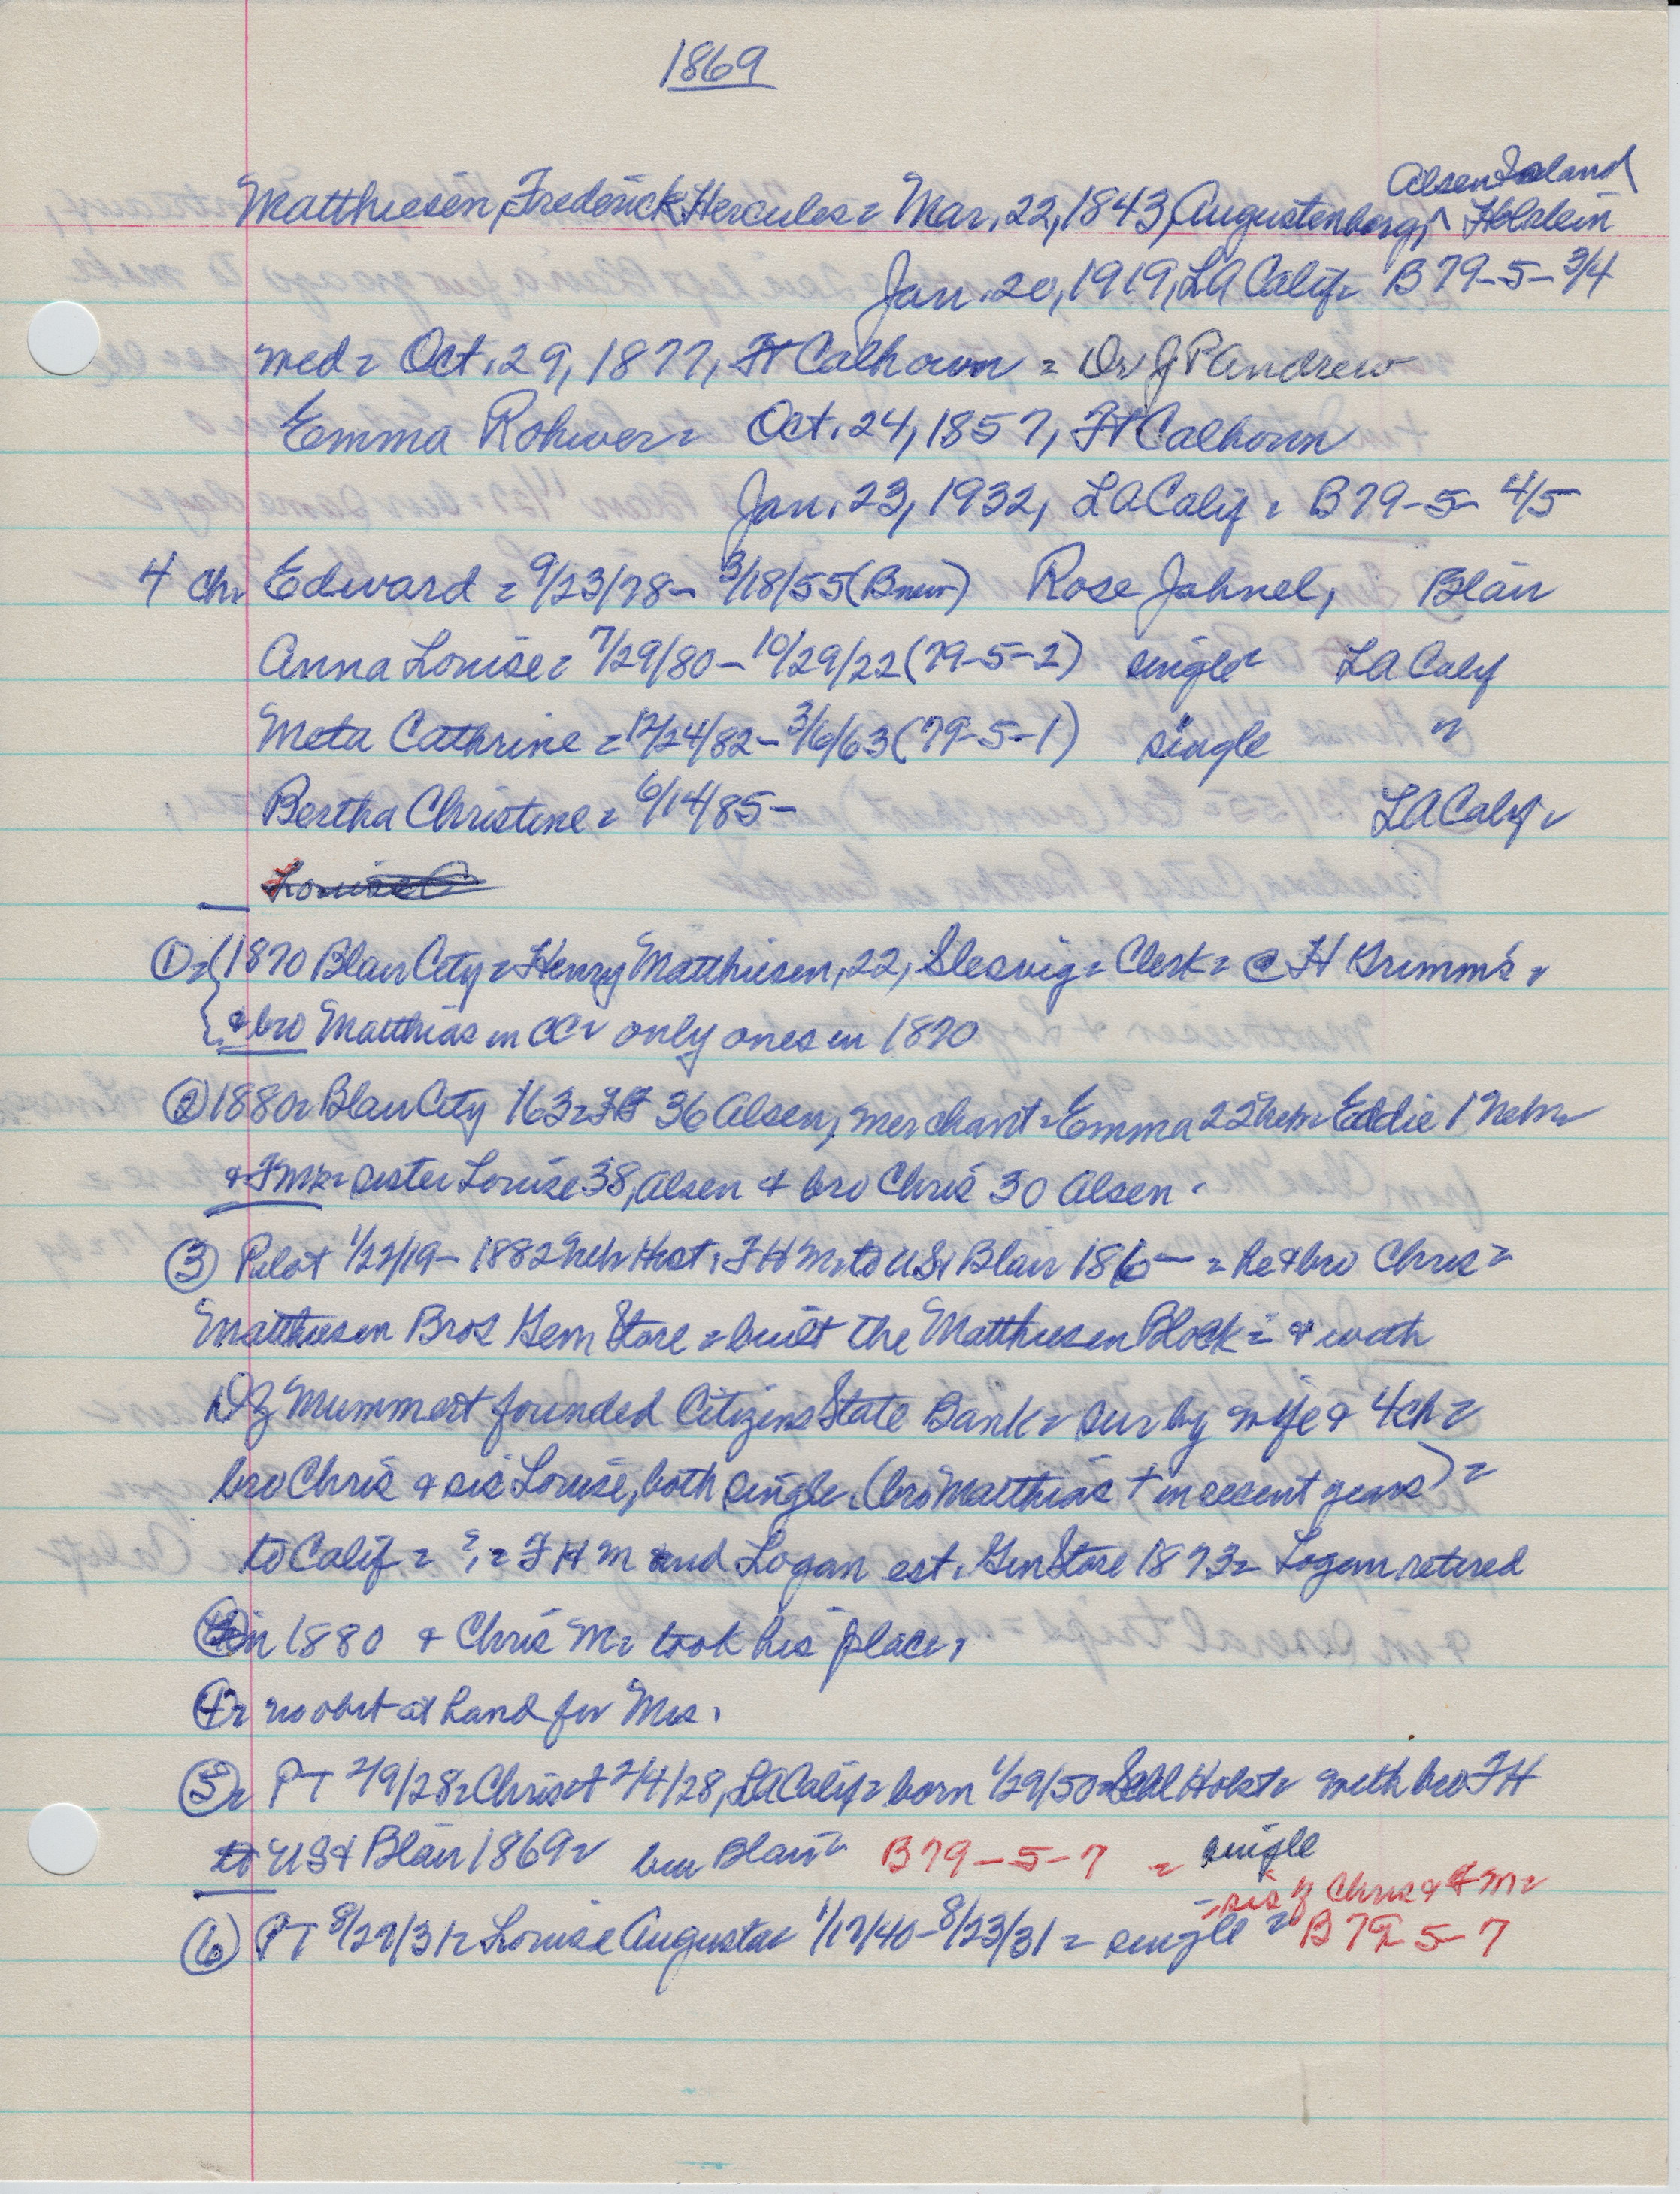 1869
Alsen Island
Matthiesen, Frederick Hercules = Mar. 22, 1843, Augustenborg, ^ Holstein
Jan. 20, 1919, LA Calif = B 79-5-3/4
med = Oct. 29, 1877, Ft Calhoun = Dr J P Andrew
Emma Rohwer = Oct. 24, 1857, Ft Calhoun
Jan. 23, 1932, LA Calif = B 79-5-4/5
4 ch = Edward = 9/23/78 - 3/18/55 (B new) Rose Jahnel, Blair
Anna Louise = 7/29/80 - 10/29/22 (79-5-2) single = LA Calif
Meta Cathrine = 12/24/82 - 3/6/63 (79-5-1) single "
Bertha Christine = 6/14/85 - LA Calif =
Louise C
① = 1870 Blair City = Henry Matthiesen, 22, Slesvig = Clerk = @ FH Grimm's =
& bro Matthias in CC = only ones in 1870
② 1880 = Blair City 163 = FH 36 Alsen, merchant = Emma 22 Neb = Eddie 1 Neb =
& FM = sister Louise 38, Alsen & bro Chris 30 Alsen -
③ Pilot 1/22/19 - 1882 Neb Hist. FHM = to US & Blair 186- = he & bro Chris =
Matthiesen Bros Gen Store = built the Matthiesen Block = & with
DZ Mummert founded Citizens State Bank = sur by wife & 4 ch =
bro Chris & sis Louise, both single. (bro Matthias † in recent years) =
to Calif = ? = FHM and Logan est. Gen Store 1873 = Logan retired
in 1880 & Chris M = took his place.
④ = no obit at hand for Mrs.
⑤ = PT 2/9/28 = Chris † 2/4/28, LA Calif = born 1/29/50 = Schl Holst = with bro FH
to US & Blair 1869 = bur Blair = B 79-5-7 = single
= sis of Chris & FM =
⑥ PT 8/27/31 = Louise Augusta = 1/17/40 - 8/23/31 = single = B 79-5-7